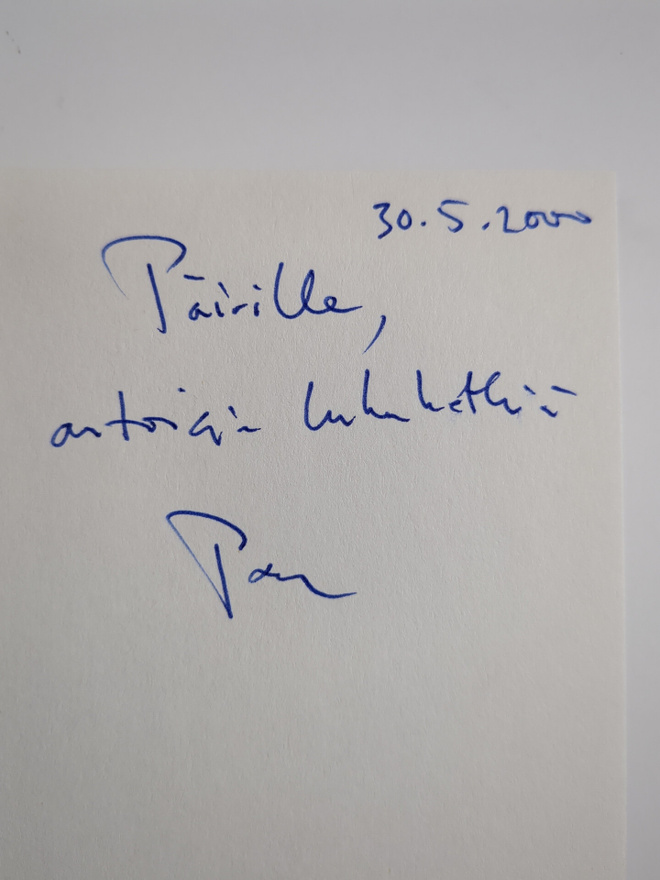 30.5.2000
Päiville,
antoisia lukuhetkiä